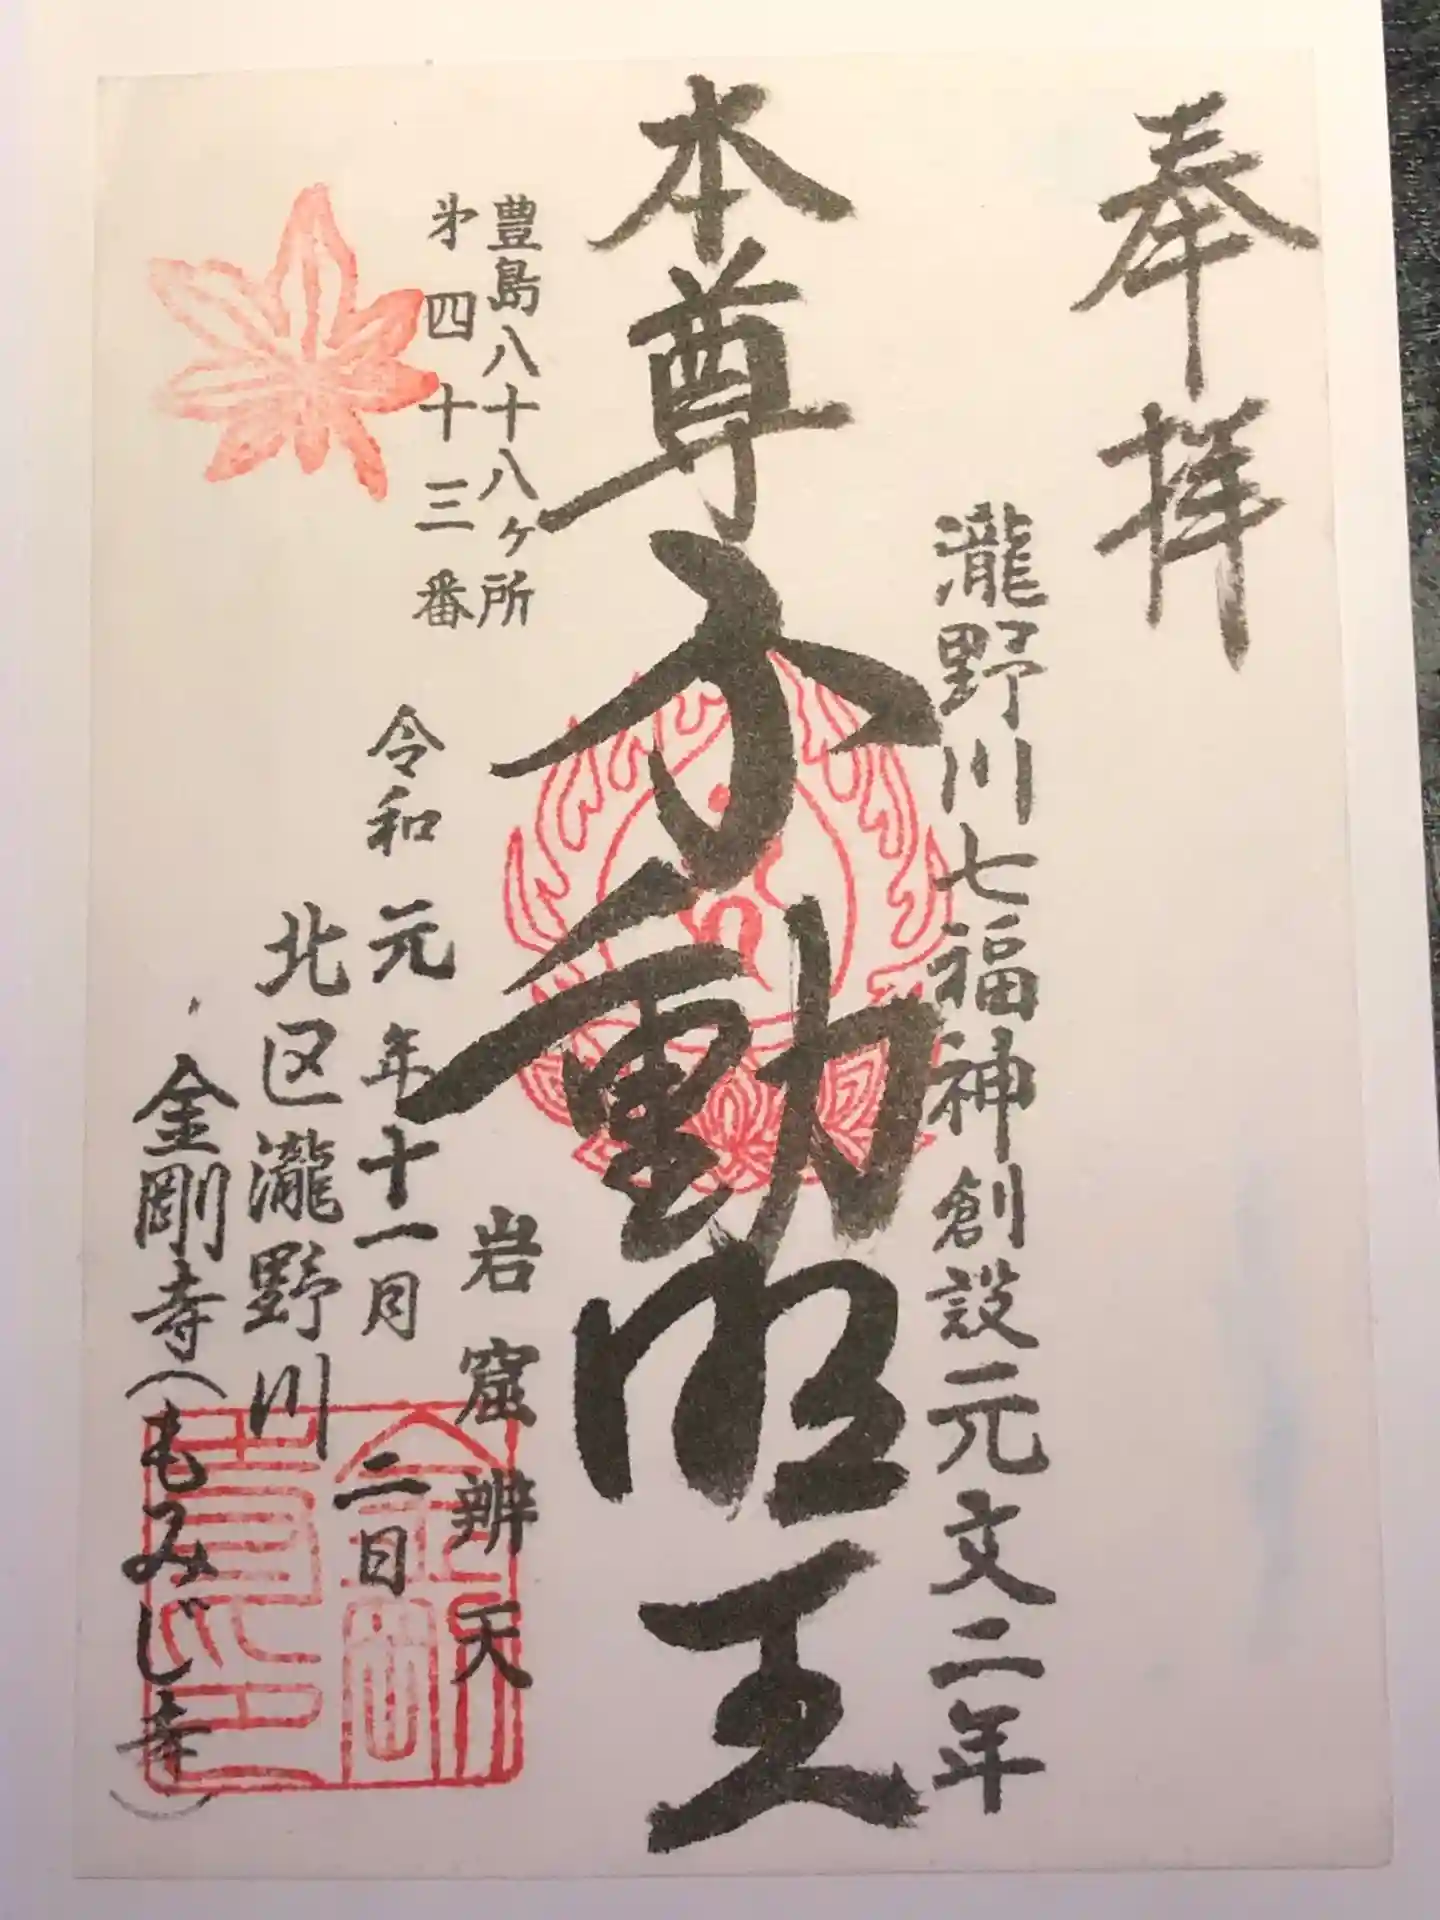 奉拝
瀧野川七福神創設元文二年
本尊不動明王
豊島八十八ヶ所
岩窟辨天
第四十三番
令和元年十一月二日
北区瀧野川
金剛寺(もみじ寺)
金剛寺印